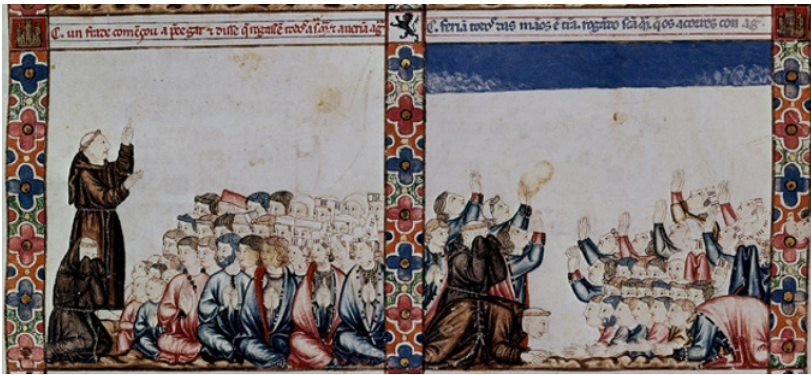 C. un frade começou a preegar ⁊ disse q̃ rogassẽ todos a s̃. m̃. ⁊ averiã ag̃
C. feriã todos das mãos ẽ t̃ra. rogãdo s̃c̃a m̃. q̃ os acorres con ag̃.